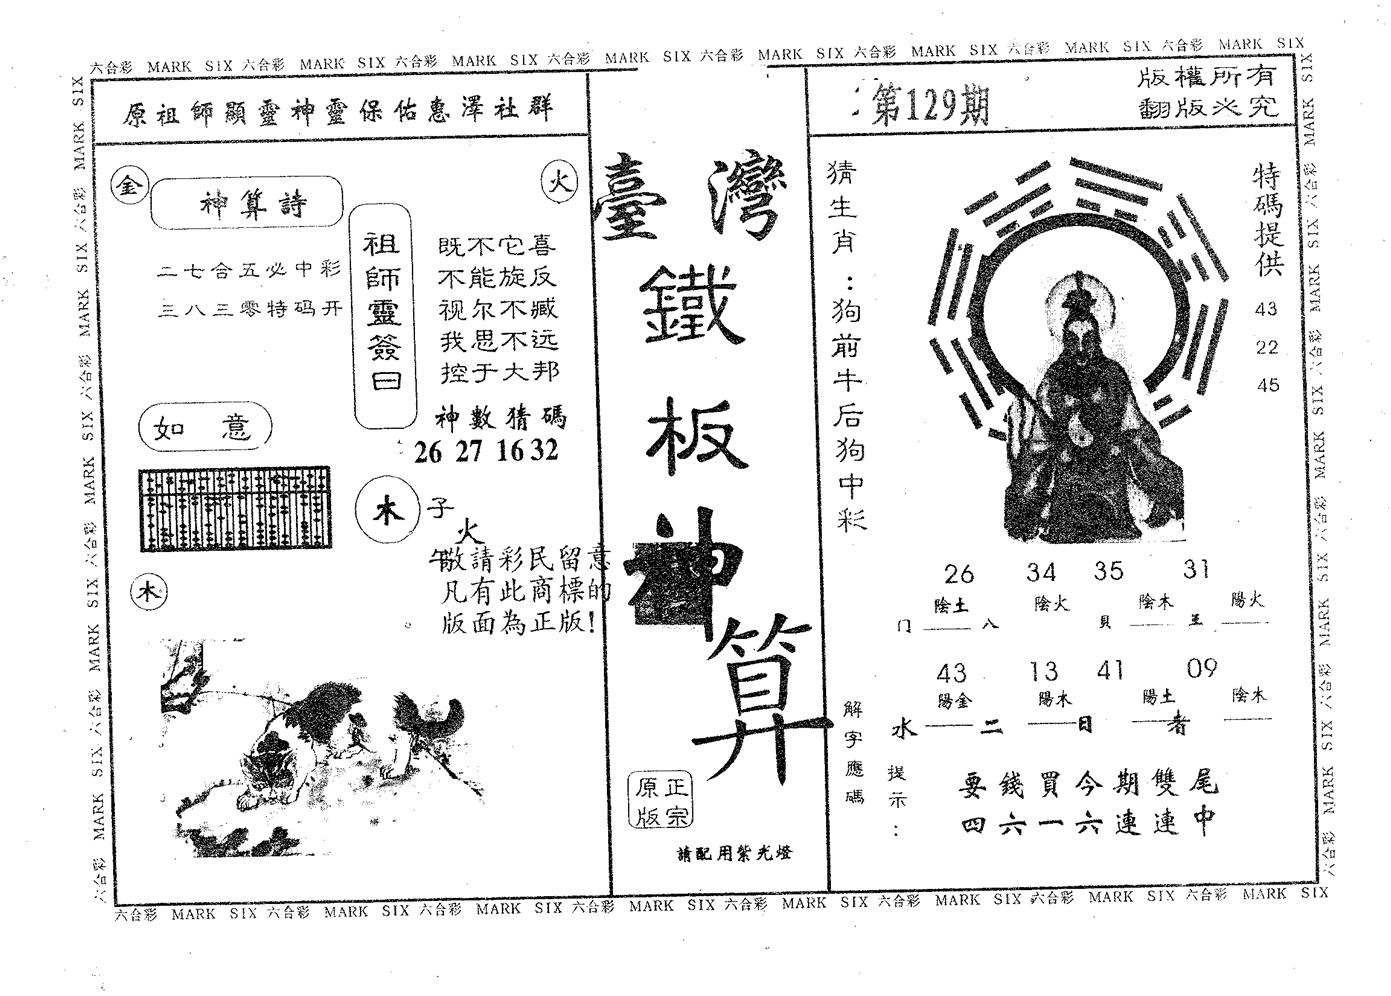 六合彩 MARK SIX 六合彩 MARK SIX 六合彩 MARK SIX 六合彩 MARK SIX 六合彩 MARK SIX 六合彩 MARK SIX 六合彩 MARK SIX 六合彩 MARK SIX
原祖師顯靈神靈保佑惠澤社群
金
神算詩
火
二七合五必中彩
三八三零特码开
祖師靈簽曰
既不它喜
不能旋反
视尔不臧
我思不远
控于大邦
神數猜碼
26 27 16 32
如意
木
子
火
午
敬請彩民留意
凡有此商標的
版面為正版!
木
臺灣
鐵
板
神
算
正宗
原版
請配用紫光燈
第129期
版權所有
翻版必究
猜生肖:狗前牛后狗中彩
特碼提供
43
22
45
26 34 35 31
陰土 陰火 陰木 陽火
门 八 貝 王
43 13 41 09
陽金 陽木 陽土 陰木
水 二 日 者
解字應碼
提示:
要錢買今期雙尾
四六一六連連中
六合彩 MARK SIX 六合彩 MARK SIX 六合彩 MARK SIX 六合彩 MARK SIX 六合彩 MARK SIX 六合彩 MARK SIX 六合彩 MARK SIX 六合彩 MARK SIX
六合彩 MARK SIX 六合彩 MARK SIX 六合彩 MARK SIX 六合彩 MARK SIX 六合彩 MARK SIX
六合彩 MARK SIX 六合彩 MARK SIX 六合彩 MARK SIX 六合彩 MARK SIX 六合彩 MARK SIX